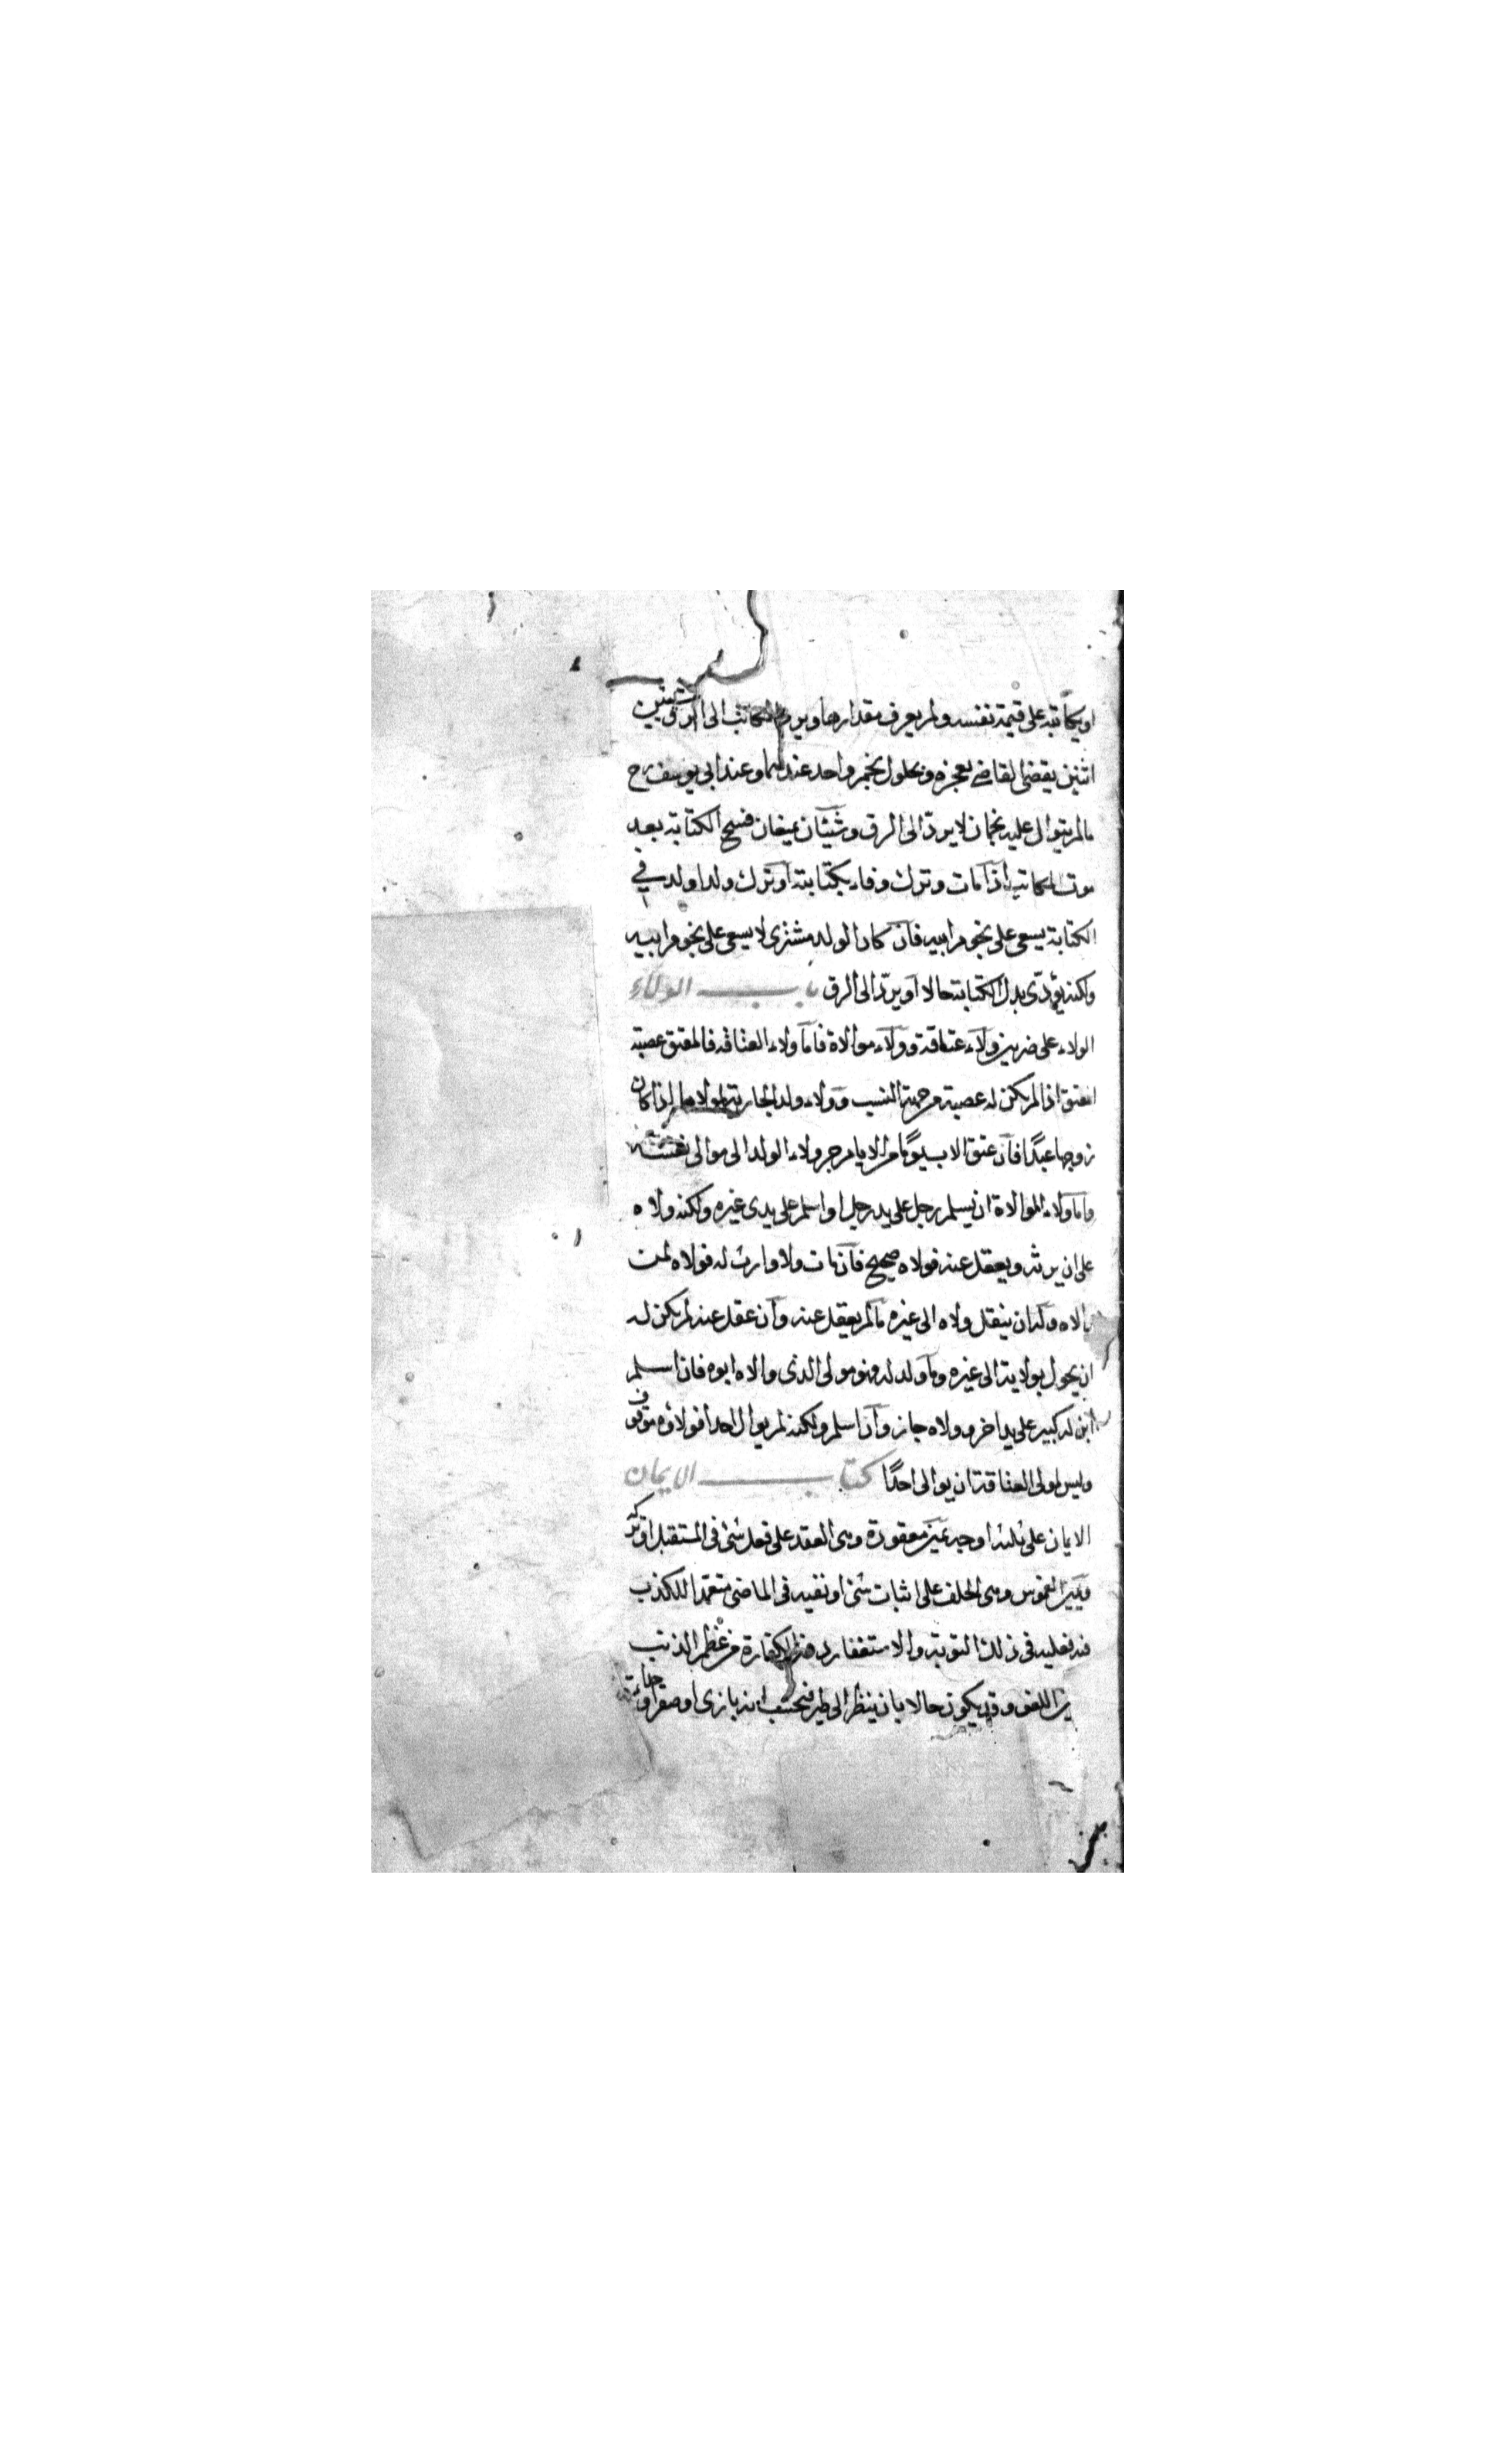 او يكاتبه على قيمة نفسه ولم يعرف مقدارها ويرد المكاتب الى الرق بشيئين
اثنين يقضى القاضى بعجزه وبحلول نجم واحد عندهما وعند ابي يوسف رح
مالم يتوال عليه نجمان لا يردّ الى الرق وشيئان يمنعان فسخ الكتابة بعد
موت المكاتب اذا مات وترك وفاء بكتابته او ترك ولدا ولد في
الكتابة يسعى على نجوم ابيه فان كان الولد مشترى لا يسعى على نجوم ابيه
ولكنه يؤدّى بدل الكتابة حالا او يردّ الى الرق باب الولاء
الولاء على ضربين ولاء عتاقة وولاء موالاة فاما ولاء العتاقه فالمعتق عصبة
المعتق اذا لم يكن له عصبة من جهة النسب وولاء ولد الجارية لمولاها اذا كان
زوجها عبدًا فان عتق الاب يومًا من الايام جر ولاء الولد الى موالى نفسه
واما ولاء الموالاة ان يسلم رجل على يد رجل او اسلم على يدى غيره ولكنه والاه
على ان يرثه ويعقل عنه فولاه صحيح فان مات ولا وارث له فولاه لمن
والاه وله ان ينقل ولاه الى غيره مالم يعقل عنه وان عقل عنه لم يكن له
ان يحول بولايته الى غيره وما ولد له فهو مولى الذى والاه ابوه فان اسلم
ابن له كبير على يد اخر وولاه جاز وان اسلم ولكنه لم يوال احدا فولاؤه موقوف
وليس لمولى العتاقة ان يوالى احدًا كتاب الايمان
الايمان على ثلثة اوجه يمين معقودة وهى العقد على فعل شئ فى المستقبل او تركه
ويمين الغموس وهى الحلف على اثبات شئ او نفيه فى الماضى متعمدا للكذب
فيه فعليه فى ذلك التوبة والاستغفار دون الكفارة من عظم الذنب
اللغو وقد يكون حالا بان ينظر الى طير فيحسب انه بازى او صقر او